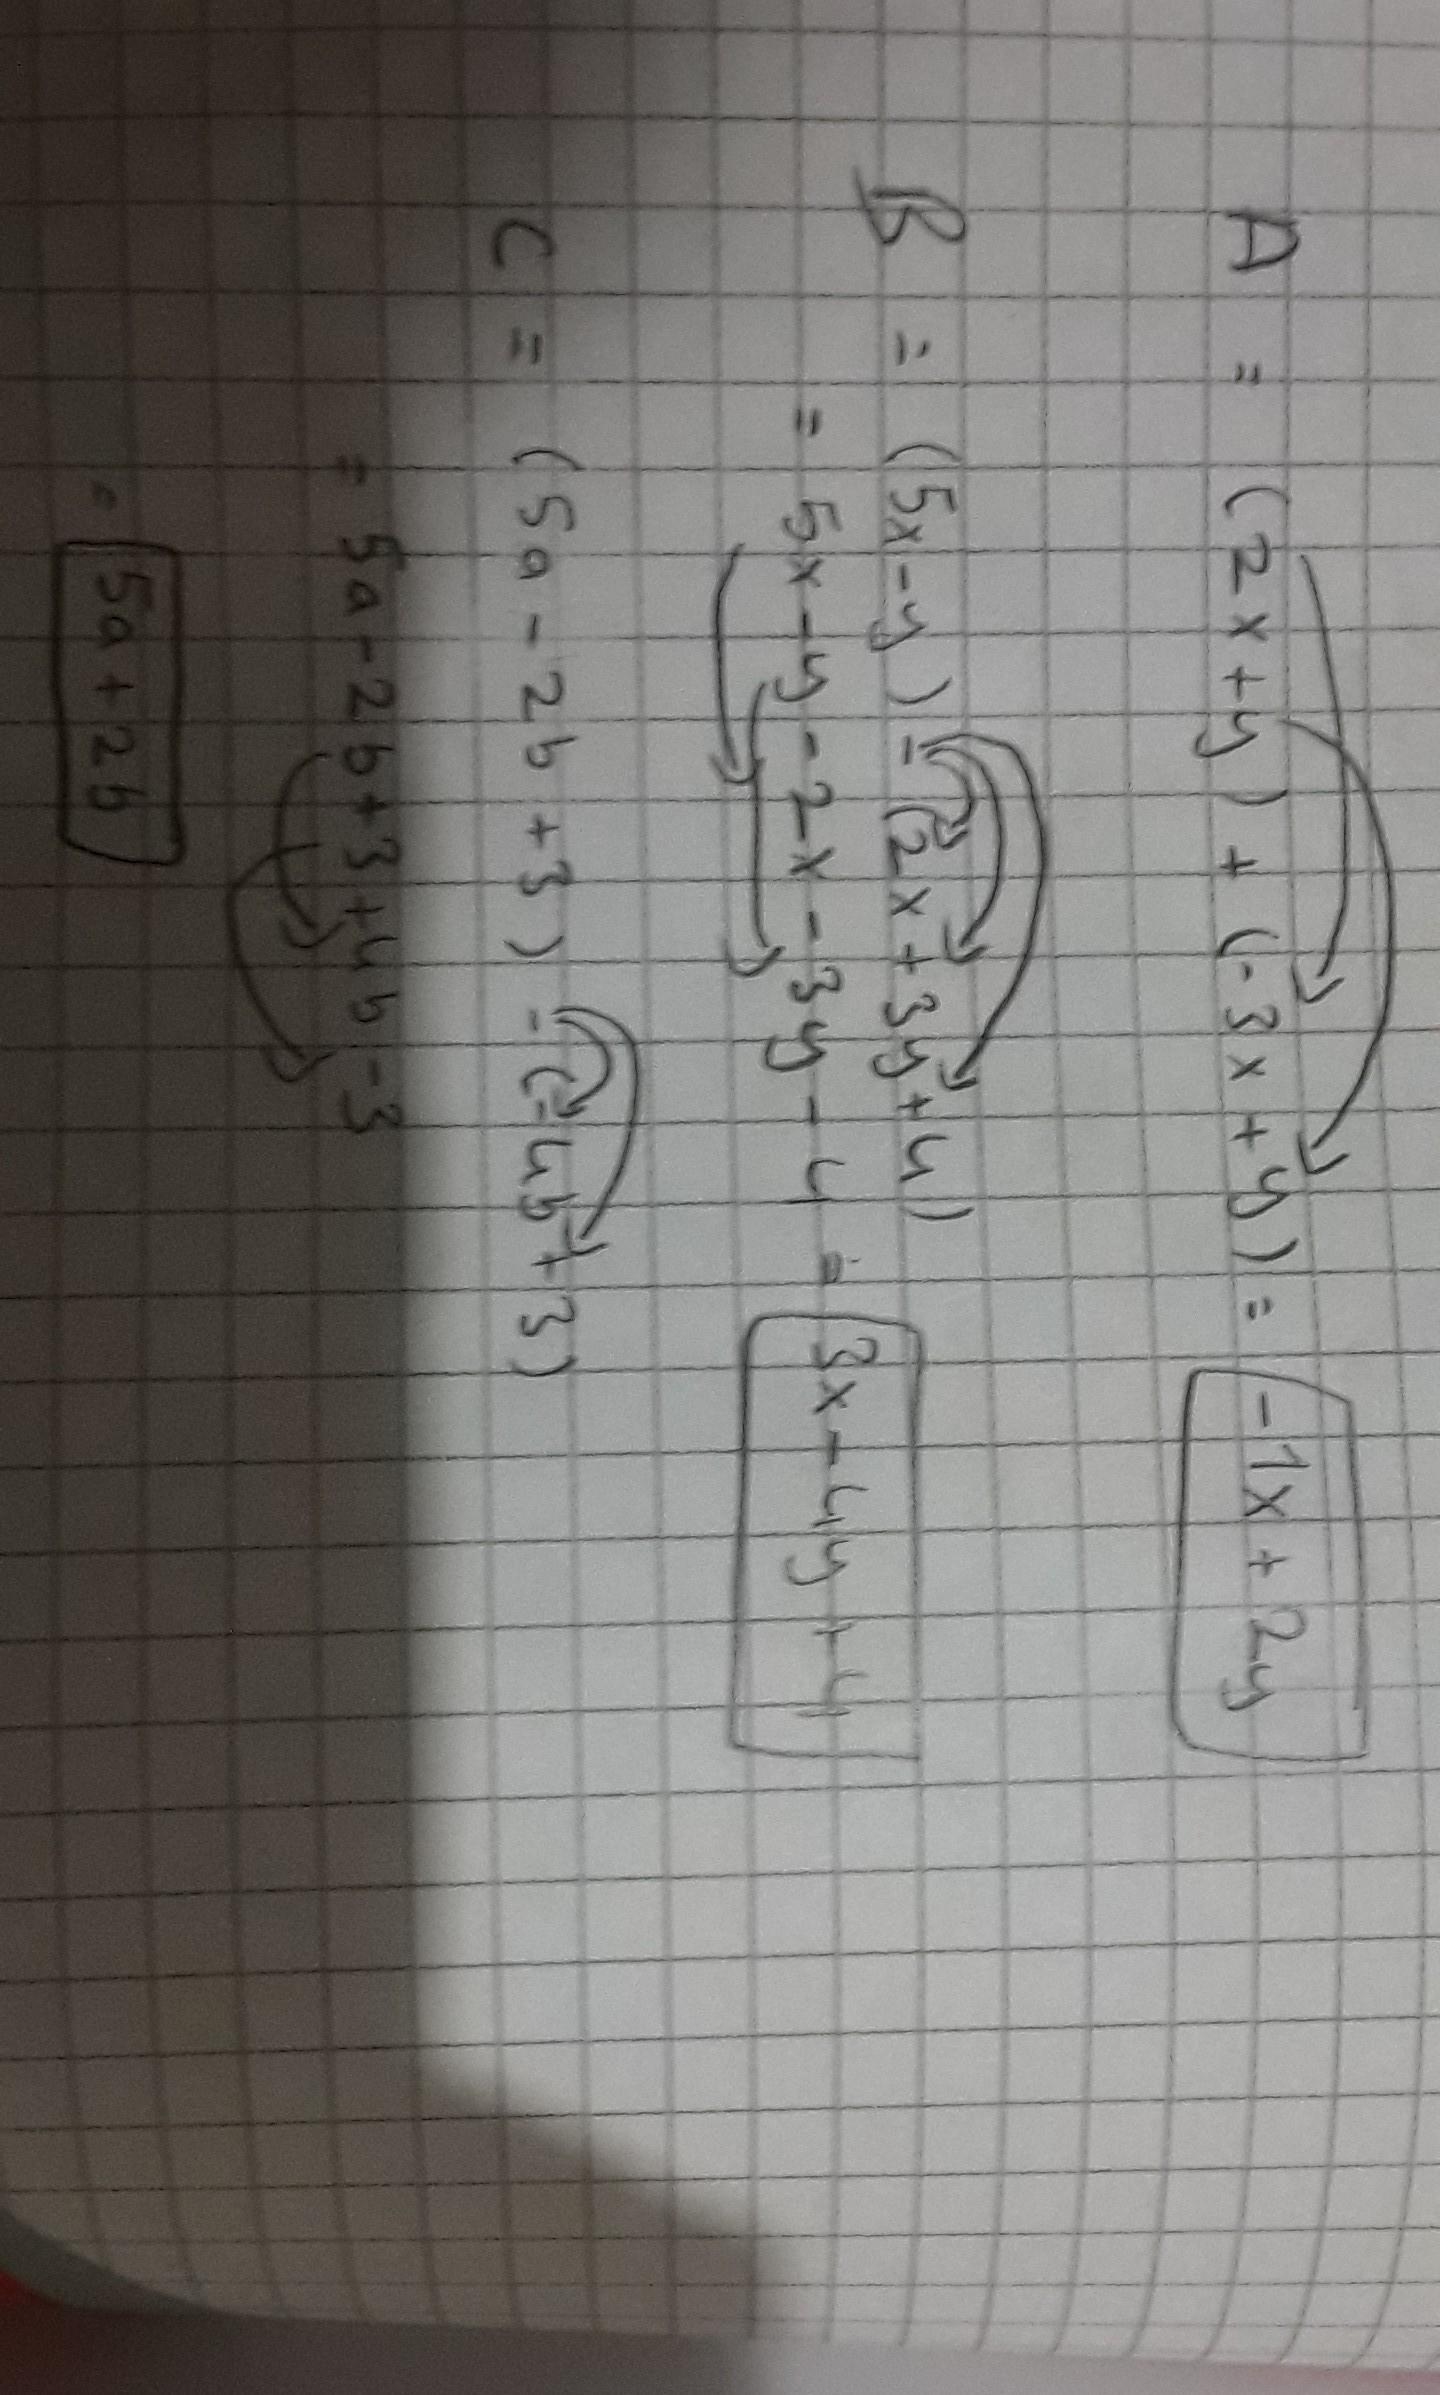 A = (2x+y) + (-3x+y) = -1x + 2y
B = (5x-y) - (2x+3y+4)
= 5x-y-2x-3y-4 = 3x-4y+4
C = (5a-2b+3) - (-4b+3)
= 5a-2b+3+4b-3
= 5a+2b